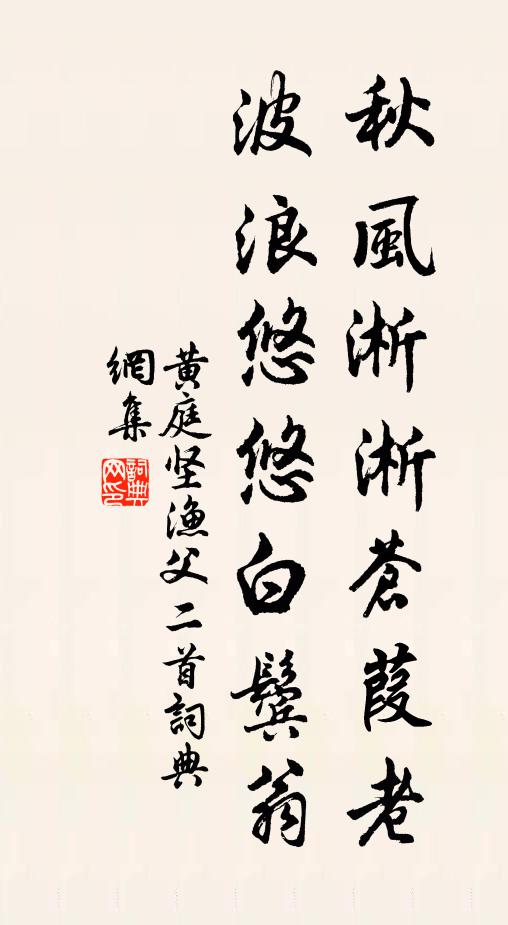 秋風淅淅蒼葭老
波浪悠悠白鬢翁
黄庭坚漁父二首詞典
網集
詞典
网印